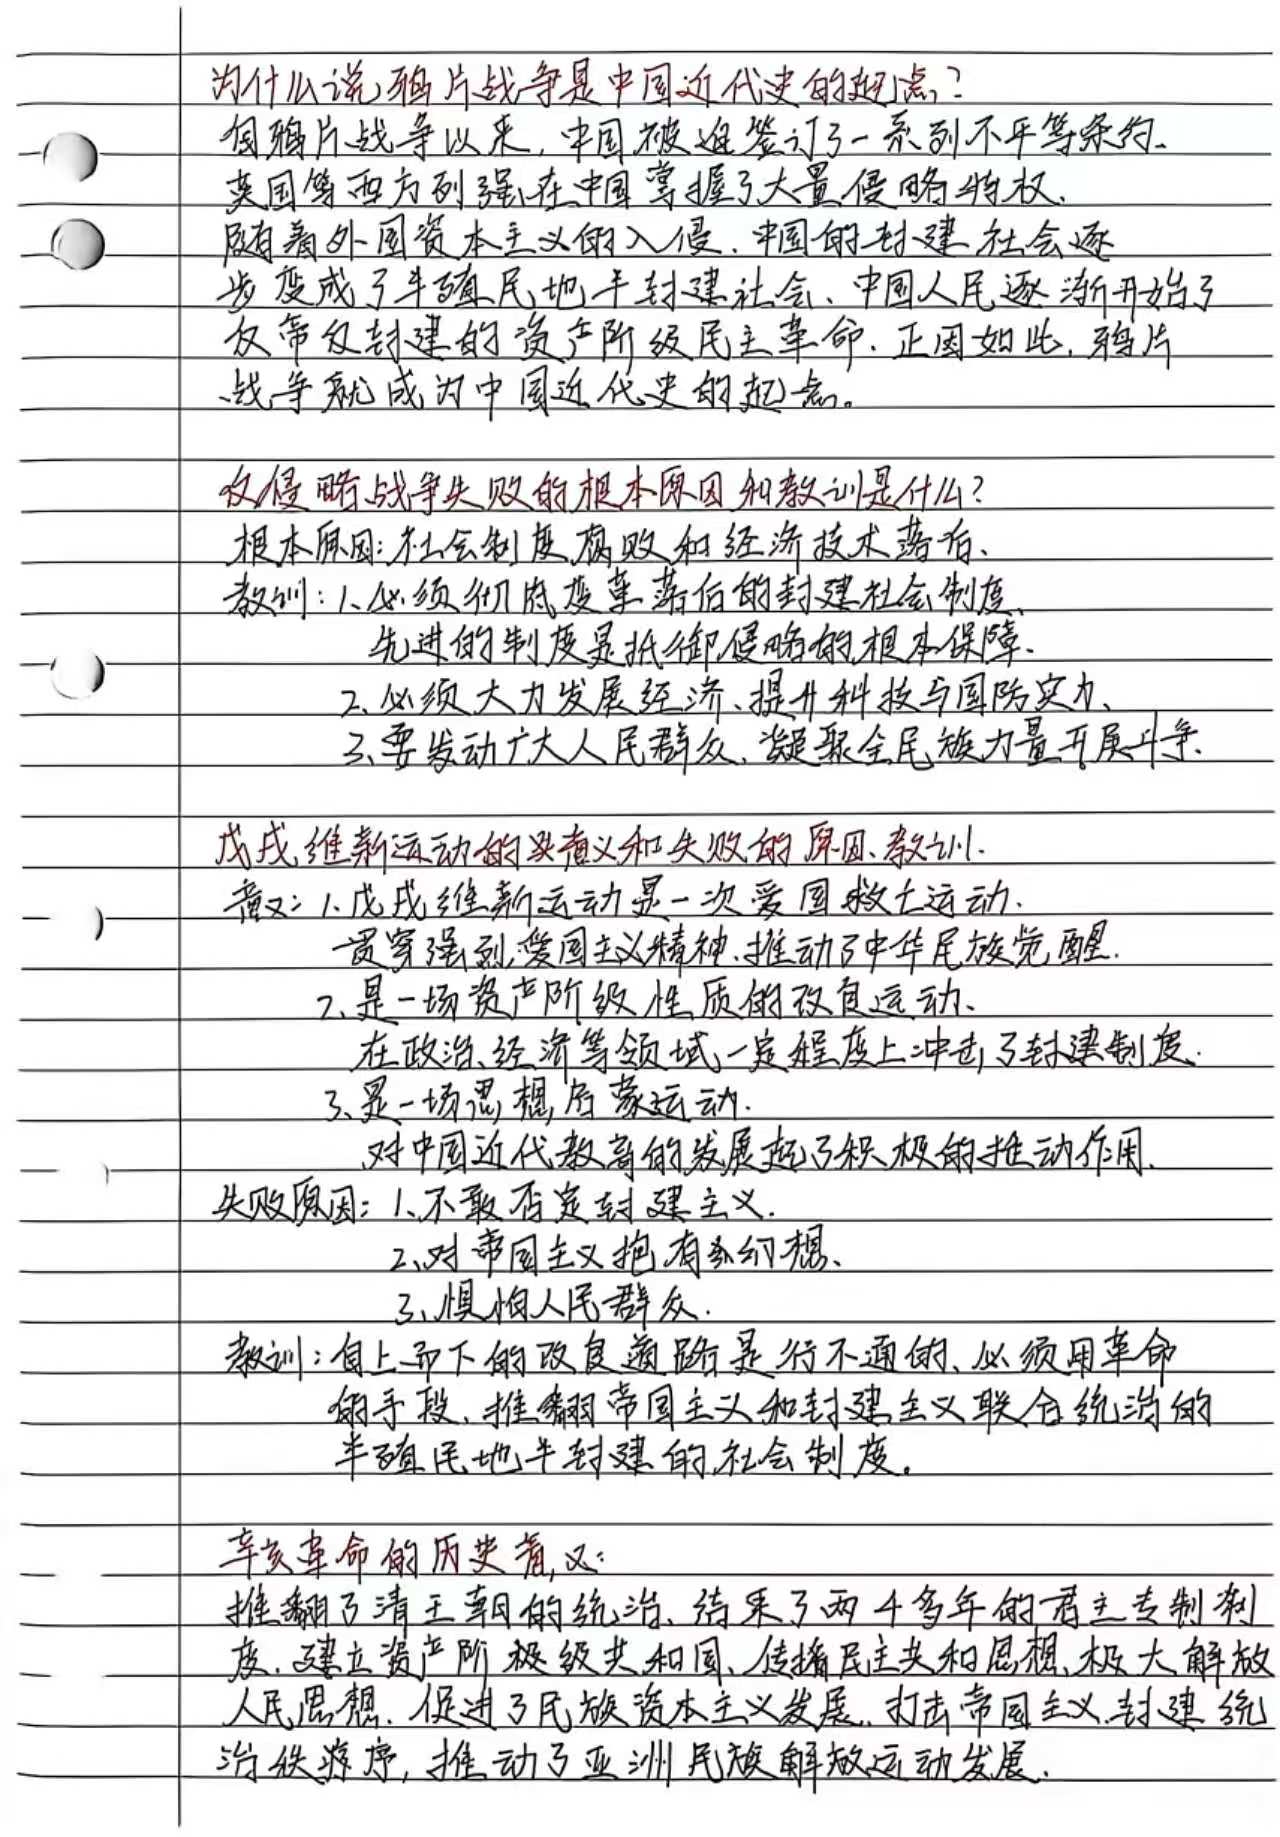 为什么说鸦片战争是中国近代史的起点?
自鸦片战争以来,中国被迫签订了一系列不平等条约、
英国等西方列强在中国掌握了大量侵略特权、
随着外国资本主义的入侵、中国的封建社会逐
步变成了半殖民地半封建社会、中国人民逐渐开始了
反帝反封建的资产阶级民主革命.正因如此,鸦片
战争就成为中国近代史的起点。
反侵略战争失败的根本原因和教训是什么?
根本原因:社会制度腐败和经济技术落后、
教训:1、必须彻底变革落后的封建社会制度、
先进的制度是抵御侵略的根本保障.
2、必须大力发展经济、提升科技与国防实力、
3、要发动广大人民群众、凝聚全民族力量开展斗争.
戊戌维新运动的意义和失败的原因、教训.
意义:1、戊戌维新运动是一次爱国救亡运动.
贯穿强烈爱国主义精神、推动了中华民族觉醒.
2、是一场资产阶级性质的改良运动、
在政治、经济等领域一定程度上冲击了封建制度.
3、是一场思想启蒙运动.
对中国近代教育的发展起了积极的推动作用、
失败原因:1、不敢否定封建主义.
2、对帝国主义抱有幻想、
3、惧怕人民群众.
教训:自上而下的改良道路是行不通的、必须用革命
的手段、推翻帝国主义和封建主义联合统治的
半殖民地半封建的社会制度。
辛亥革命的历史意义:
推翻了清王朝的统治、结束了两千多年的君主专制制
度、建立资产阶级共和国、传播民主共和思想、极大解放
人民思想.促进了民族资本主义发展、打击帝国主义、封建统
治秩序,推动了亚洲民族解放运动发展.